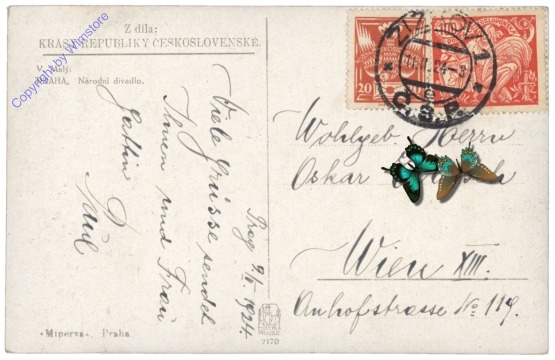 Z díla:
KRÁSY REPUBLIKY ČESKOSLOVENSKÉ.
V. Malý:
PRAHA, Národní divadlo.
Copyright by Wimstore
Prag 9/II. 1924.
Viele Grüsse sendet
Ihnen und Frau
Gattin
Paul
20
ŽIŽKOV 1
Č.S.P.
Wohlgeb. Herrn
Oskar
Wien XIII.
Anhofstrasse No 119.
«Minerva», Praha.
2170